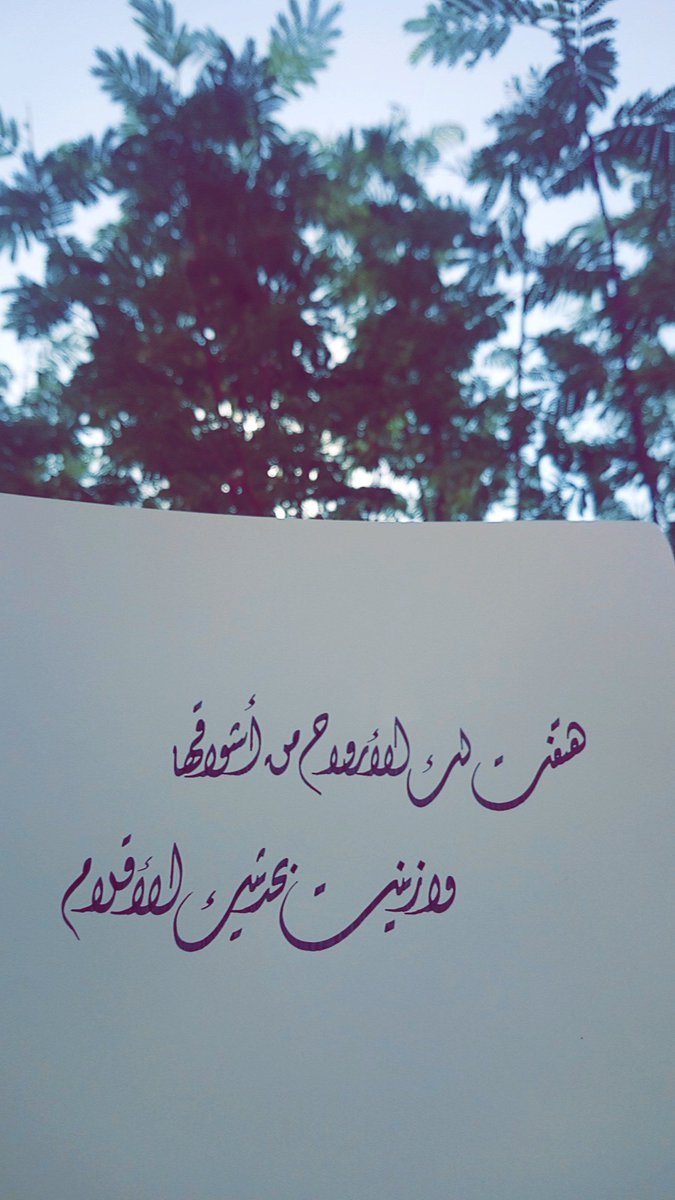 هتفت لك الأرواح من أشواقها
وازينت بحديثك الأقلام